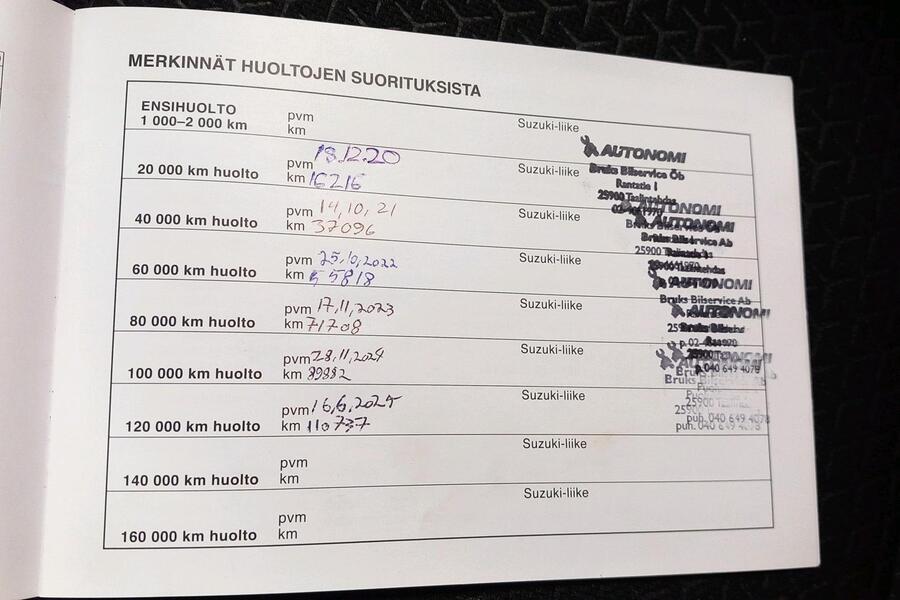 MERKINNÄT HUOLTOJEN SUORITUKSISTA
ENSIHUOLTO
1 000–2 000 km
pvm
km
Suzuki-liike
20 000 km huolto
pvm 18.12.20
km 16216
Suzuki-liike
AUTONOMI
Bruks Bilservice Öb
Rantatie 1
25900 Taalintehdas
40 000 km huolto
pvm 14,10,21
km 37096
Suzuki-liike
AUTONOMI
AUTONOMI
Bruks Bilservice Ab
60 000 km huolto
pvm 25,10,2022
km 55818
Suzuki-liike
AUTONOMI
Bruks Bilservice Ab
80 000 km huolto
pvm 17,11,2023
km 71708
Suzuki-liike
AUTONOMI
100 000 km huolto
pvm 28,11,2024
km 89882
Suzuki-liike
AUTONOMI
p. 040 649 4078
120 000 km huolto
pvm 16,6,2025
km 110737
Suzuki-liike
puh. 040 649 4078
puh. 040 649 4078
140 000 km huolto
pvm
km
Suzuki-liike
160 000 km huolto
pvm
km
Suzuki-liike